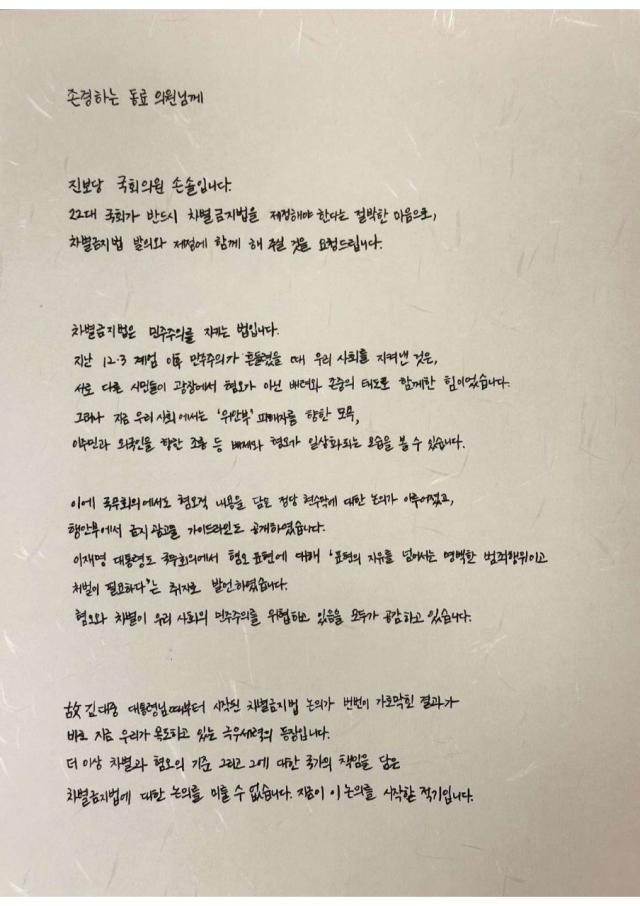 존경하는 동료 의원님께
진보당 국회의원 손솔입니다.
22대 국회가 반드시 차별금지법을 제정해야 한다는 절박한 마음으로,
차별금지법 발의와 제정에 함께 해 주실 것을 요청드립니다.
차별금지법은 민주주의를 지키는 법입니다.
지난 12·3 계엄 이후 민주주의가 흔들렸을 때 우리 사회를 지켜낸 것은,
서로 다른 시민들이 광장에서 혐오가 아닌 배려와 존중의 태도로 함께한 힘이었습니다.
그러나 지금 우리 사회에서는 '위안부' 피해자를 향한 모욕,
이주민과 외국인을 향한 조롱 등 배제와 혐오가 일상화되는 모습을 볼 수 있습니다.
이에 국무회의에서도 혐오적 내용을 담은 정당 현수막에 대한 논의가 이루어졌고,
행안부에서 금지광고물 가이드라인도 공개하였습니다.
이재명 대통령도 국무회의에서 혐오 표현에 대해 '표현의 자유를 넘어서는 명백한 범죄행위이고
처벌이 필요하다'는 취지로 발언하였습니다.
혐오와 차별이 우리 사회의 민주주의를 위협하고 있음을 모두가 공감하고 있습니다.
故 김대중 대통령님때부터 시작된 차별금지법 논의가 번번이 가로막힌 결과가
바로 지금 우리가 목도하고 있는 극우세력의 등장입니다.
더 이상 차별과 혐오의 기준 그리고 그에 대한 국가의 책임을 담은
차별금지법에 대한 논의를 미룰 수 없습니다. 지금이 이 논의를 시작할 적기입니다.